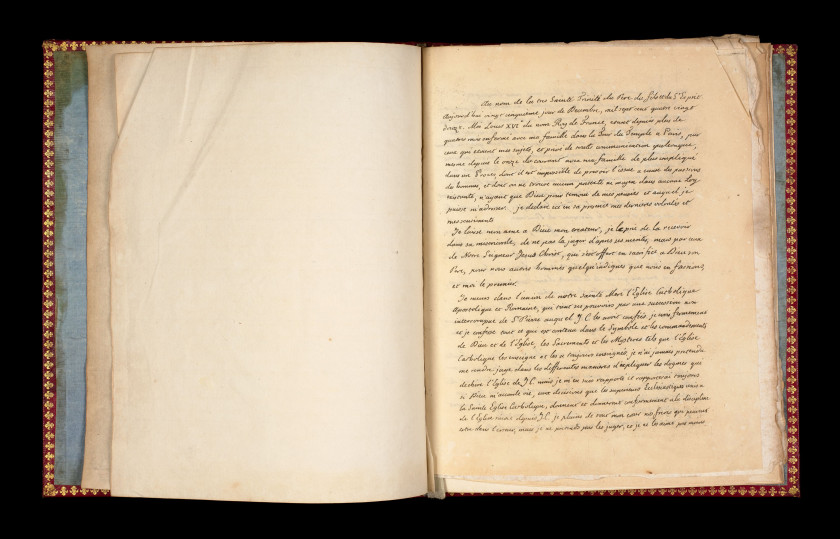 Au nom de la tres Sainte Trinité du Pere du fils et du St Esprit
Aujourd'hui vingt cinquieme jour de Decembre, mil sept cent quatre vingt
douze. Moi Louis XVIe du nom Roy de France, etant depuis plus de
quatre mois enfermé avec ma famille dans la Tour du Temple a Paris, par
ceux qui etoient mes sujets, et privé de toutte communication quelconque,
mesme depuis le onze du courant avec ma famille de plus impliqué
dans un Procès dont il est impossible de prevoir l'issue a cause des passions
des hommes, et dont on ne trouve aucun pretexte ni moyen dans aucune Loy
existante, n'ayant que Dieu pour temoin de mes pensées et auquel je
puisse m'adresser. je declare ici en sa presence mes dernieres volontés et
mes sentiments
Je laisse mon ame a Dieu mon createur, je le prie de la recevoir
dans sa misericorde, de ne pas la juger d'apres ses merites, mais par ceux
de Notre Seigneur Jesus Christ, qui s'est offert en sacrifice a Dieu son
Pere, pour nous autres hommes quelqu'indignes que nous en fussions,
et moi le premier.
Je meurs dans l'union de notre Sainte Mere l'Eglise Catholique
Apostolique et Romaine, qui tient ses pouvoirs par une succession non
interrompue de St Pierre auquel J.C. les avoit confiés je crois fermement
et je confesse tout ce qui est contenu dans le Symbole et les commandements
de Dieu et de l'Eglise, les Sacrements et les Mysteres tels que l'Eglise
Catholique les enseigne et les a toujours enseignés je n'ai jamais pretendu
me rendre juge dans les differentes manieres d'expliquer les dogmes qui
dechire l'Eglise de J.C. mais je m'en suis rapporté et rapporterai toujours
si Dieu m'accorde vie, aux decisions que les superieurs Ecclesiastiques unis a
la Sainte Eglise Catholique, donnent et donneront conformement a la discipline
de l'Eglise suivie depuis J.C. je plains de tout mon coeur nos freres qui peuvent
etre dans l'erreur, mais je ne pretends pas les juger, et je ne les aime pas moins